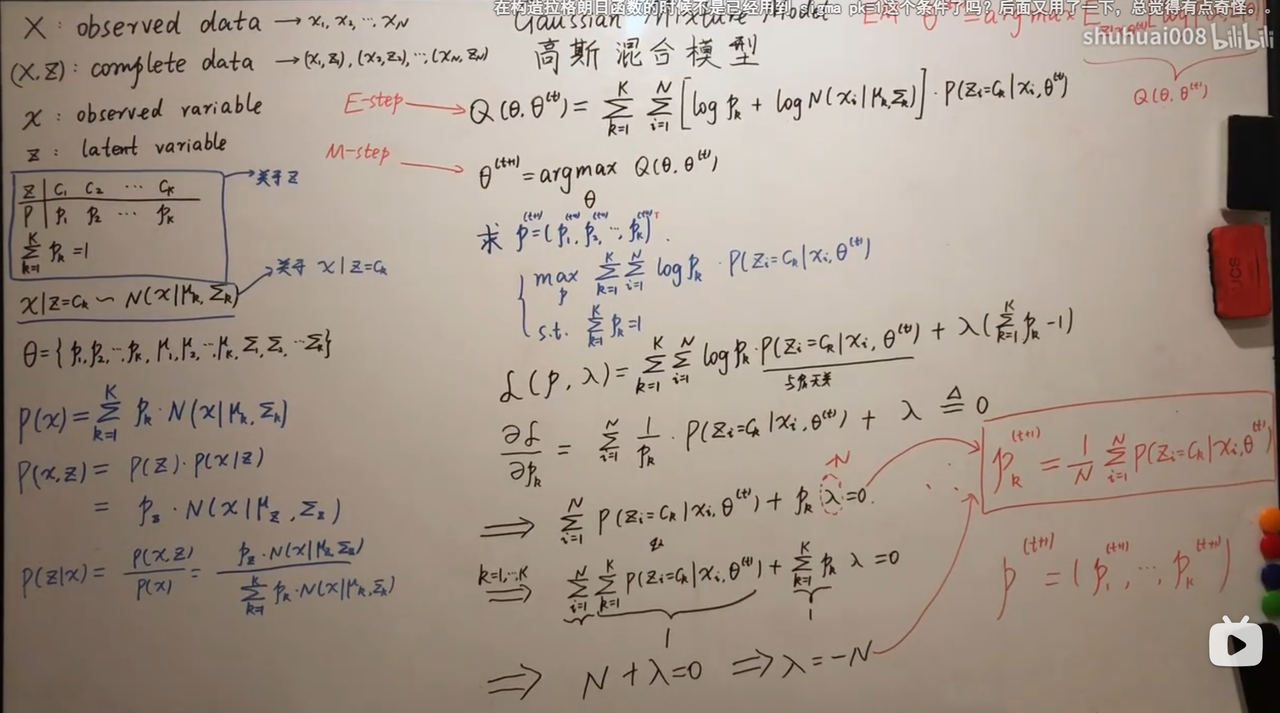 在构造拉格朗日函数的时候不是已经用到 sigma pk=1这个条件了吗？后面又用了一下，总觉得有点奇怪。
shuhuai008 bilibili
X : observed data → x₁, x₂, ⋯, x_N
(X, Z) : complete data → (x₁, z₁), (x₂, z₂), ⋯, (x_N, z_N)
x : observed variable
z : latent variable
z | C₁ C₂ ⋯ C_K
p | p₁ p₂ ⋯ p_K
∑_{k=1}^{K} p_k = 1
→ 关于 z
x|z=C_k ~ N(x|μ_k, Σ_k)
→ 关于 x|z=C_k
θ = { p₁, p₂, ⋯ p_K, μ₁, μ₂, ⋯ μ_K, Σ₁, Σ₂, ⋯ Σ_K }
P(x) = ∑_{k=1}^{K} p_k · N(x|μ_k, Σ_k)
P(x,z) = P(z) · P(x|z)
= p_z · N(x|μ_z, Σ_z)
P(z|x) = P(x,z) / P(x) = p_z · N(x|μ_z, Σ_z) / ∑_{k=1}^{K} p_k · N(x|μ_k, Σ_k)
Gaussian Mixture Model
高斯混合模型
EM θ^{(t+1)} = argmax
Q(θ, θ^{(t)})
E-step → Q(θ, θ^{(t)}) = ∑_{k=1}^{K} ∑_{i=1}^{N} [log p_k + log N(x_i|μ_k, Σ_k)] · P(z_i=C_k|x_i, θ^{(t)})
M-step → θ^{(t+1)} = argmax_θ Q(θ, θ^{(t)})
求 p^{(t+1)} = (p₁^{(t+1)}, p₂^{(t+1)}, ⋯, p_K^{(t+1)})^T.
{ max_p ∑_{k=1}^{K} ∑_{i=1}^{N} log p_k · P(z_i=C_k|x_i, θ^{(t)})
s.t. ∑_{k=1}^{K} p_k = 1
L(p, λ) = ∑_{k=1}^{K} ∑_{i=1}^{N} log p_k · P(z_i=C_k|x_i, θ^{(t)}) + λ(∑_{k=1}^{K} p_k − 1)
与p_k无关
∂L/∂p_k = ∑_{i=1}^{N} 1/p_k · P(z_i=C_k|x_i, θ^{(t)}) + λ ≜ 0
-N
⟹ ∑_{i=1}^{N} P(z_i=C_k|x_i, θ^{(t)}) + p_k λ = 0.
k=1,⋯K ⟹ ∑_{i=1}^{N} ∑_{k=1}^{K} P(z_i=C_k|x_i, θ^{(t)}) + ∑_{k=1}^{K} p_k λ = 0
1 1
⟹ N + λ = 0 ⟹ λ = −N
∴ p_k^{(t+1)} = 1/N ∑_{i=1}^{N} P(z_i=C_k|x_i, θ^{(t)})
p^{(t+1)} = (p₁^{(t+1)}, ⋯, p_K^{(t+1)})
UCS